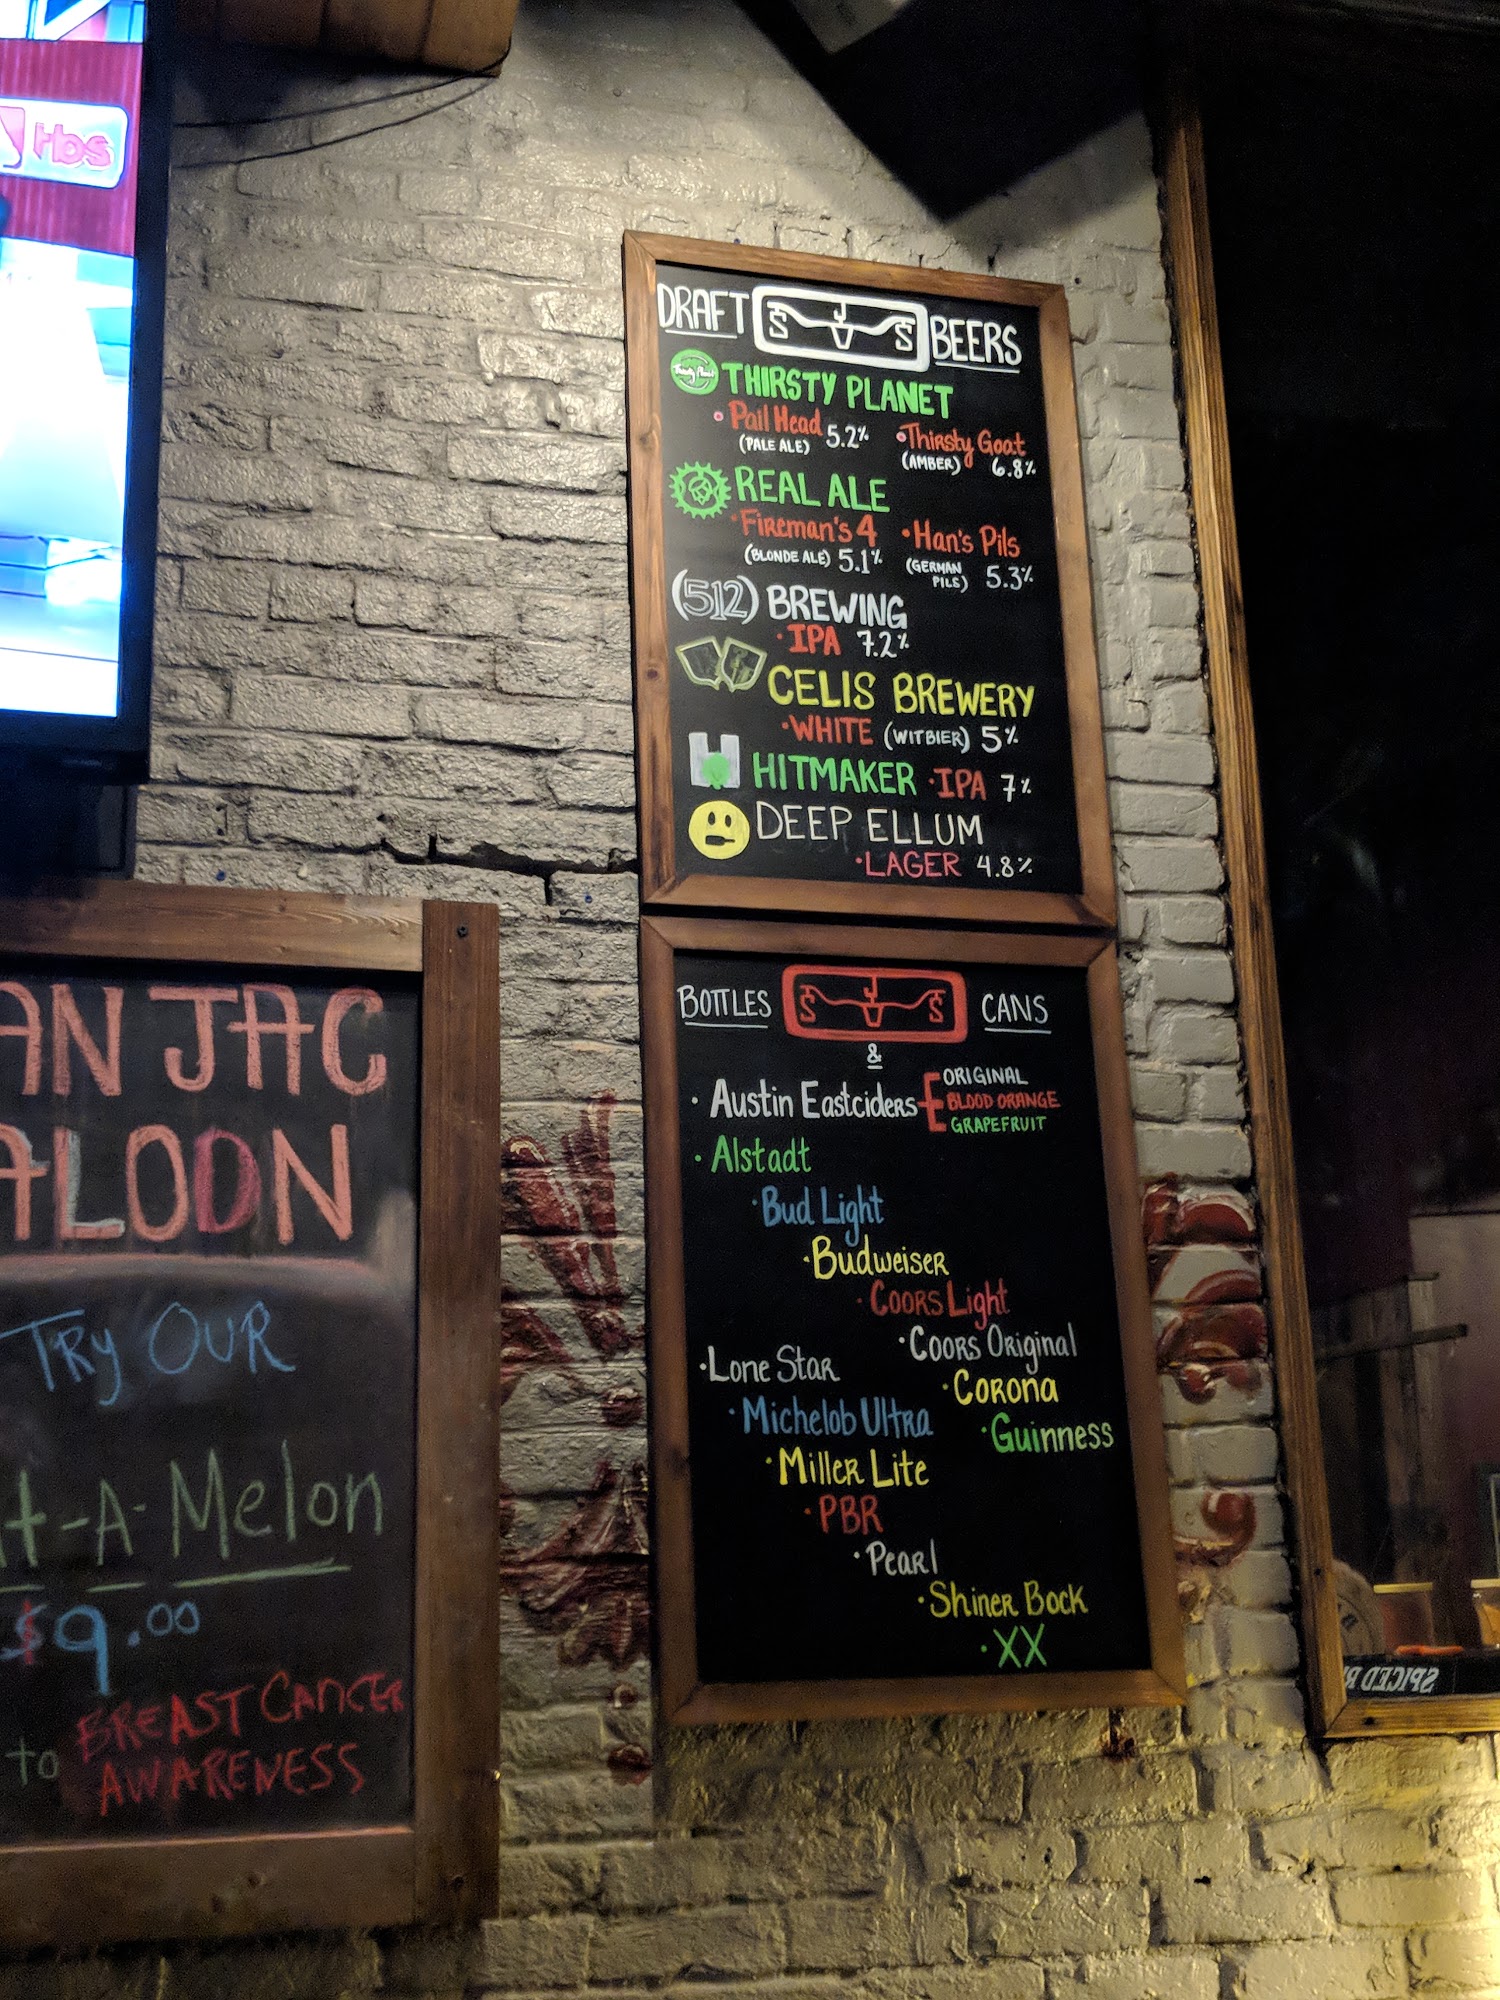 tbs
DRAFT SJS BEERS
THIRSTY PLANET
• Pail Head 5.2% • Thirsty Goat
(PALE ALE) (AMBER) 6.8%
REAL ALE
• Fireman's 4 • Han's Pils
(BLONDE ALE) 5.1% (GERMAN PILS) 5.3%
(512) BREWING
• IPA 7.2%
CELIS BREWERY
• WHITE (WITBIER) 5%
HITMAKER • IPA 7%
DEEP ELLUM
• LAGER 4.8%
BOTTLES SJS CANS
&
• Austin Eastciders ORIGINAL
BLOOD ORANGE
GRAPEFRUIT
• Alstadt
• Bud Light
• Budweiser
• Coors Light
• Coors Original
• Lone Star
• Corona
• Michelob Ultra
• Guinness
• Miller Lite
• PBR
• Pearl
• Shiner Bock
• XX
AN JAC
ALOON
TRY OUR
t-A-Melon
$9.00
to BREAST CANCER
AWARENESS
SPICED R